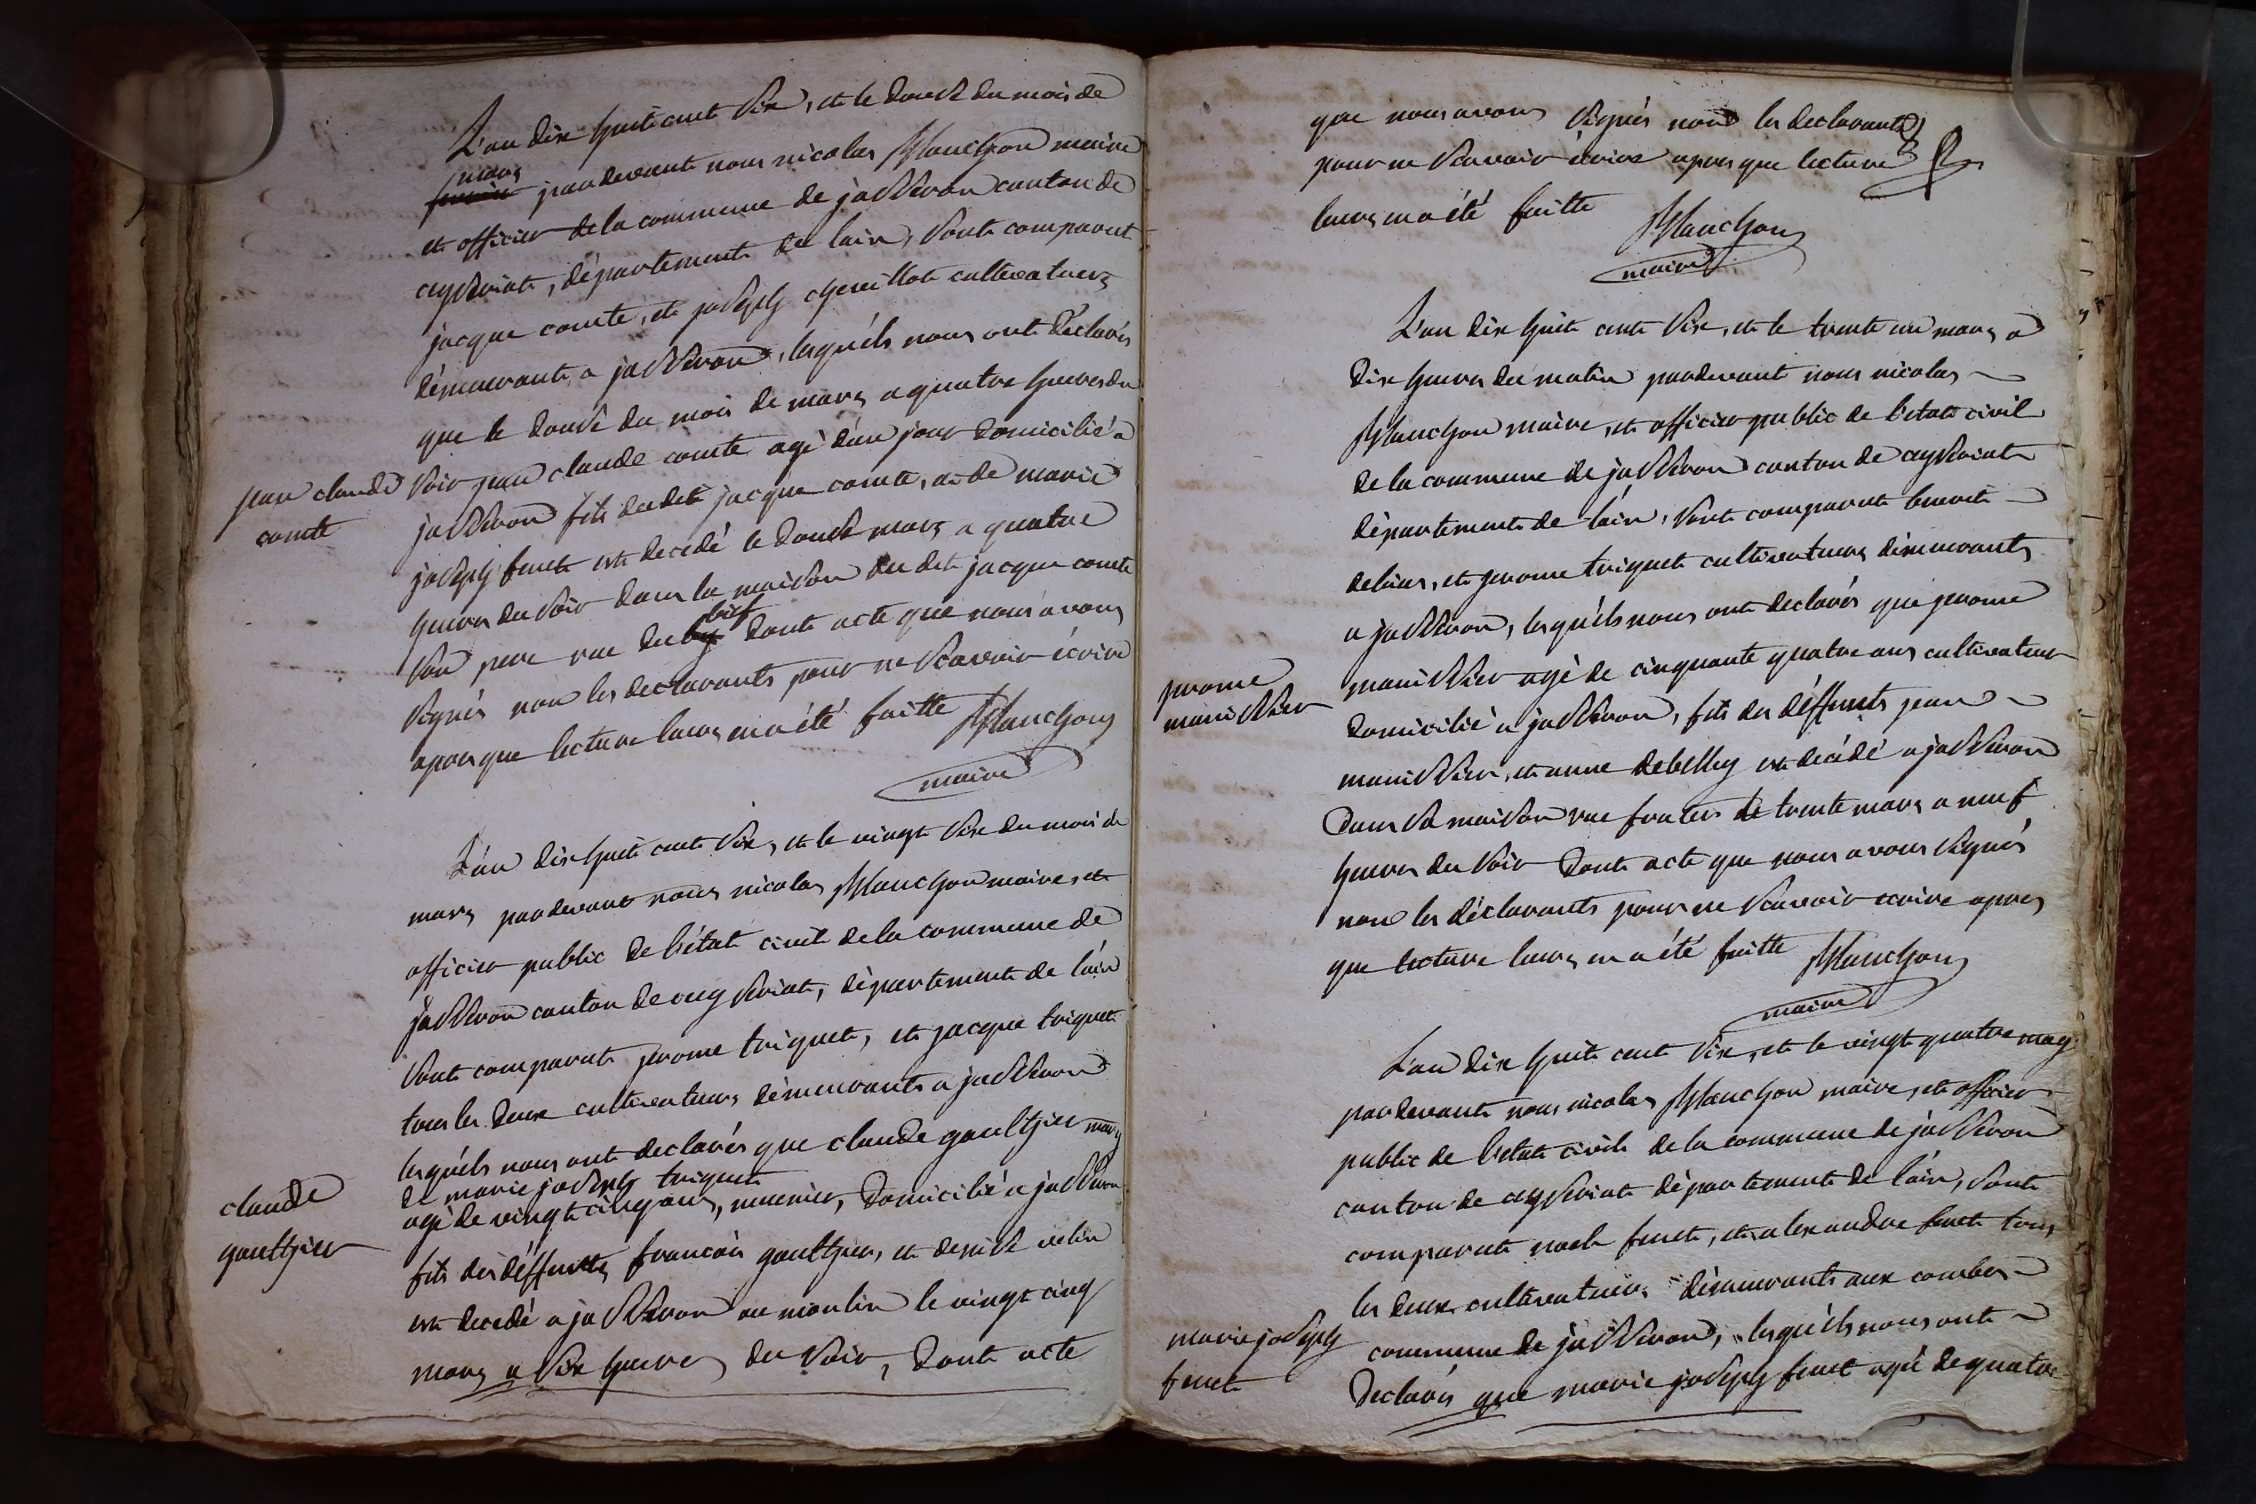 L'an dix huit cent six, et le douze du mois de
mars
fevrier pardevant nous nicolas Planchon maire
et officier de la commune de jasseron canton de
ceyzeriat, département de lain, sont comparut
jacque comte, et joseph chevillot cultivateurs
démeurants a jasseron, lesquéls nous ont déclarés
que le douse du mois de mars a quatre heures du
soir jean claude comte agé d'un jour domicilié a
jasseron fils dudit jacque comte, et de marie
joseph fenet est decedé le douze mars a quatre
heures du soir dans la maison du dit jacque comte
bief
son pere rue du dont acte que nous avons
signés non les declarants pour ne scavoir écrire
apres que lecture leurs en a été faitte Planchon
maire
jean claude
comte
L'an dix huit cent six, et le vingt six du mois de
mars pardevant nous nicolas Planchon maire, et
officier public de l'état civil de la commune de
jasseron canton de ceyzeriat, département de lain
sont comparut jerome triquet, et jacque triquet
tous les deux cultivateurs démeurants a jasseron
lesquéls nous ont declarés que claude gaulthier mary
de marie joseph triquet
agé de vingt cinq ans, meunier, domicilié a jasseron
fils des déffunts francois gaulthier, et denise velin
est decedé a jasseron au moulin le vingt cinq
mars a six heures du soir, dont acte
claude
gaulthier
que nous avons signés non les declarants
pour ne scavoir écrire apres que lecture
leurs en a été faitte Planchon
maire
L'an dix huit cent six, et le trente un mars a
dix heures du matin pardevant nous nicolas
Planchon maire, et officier public de l'etat civil
de la commune de jasseron canton de ceyzeriat
département de l'ain, sont comparut benoit
debias, et jerome triquet cultivateurs démeurants
a jasseron, lesquéls nous ont declarés que jerome
manissier agé de cinquante quatre ans cultivateur
domicilié a jasseron, fils des déffunts jean
manissier, et anne debelley est décédé a jasseron
dans sa maison rue le trente mars a neuf
heures du soir dont acte que nous avons signés
non les déclarants pour ne scavoir ecrire apres
que lecture leurs en a été faitte Planchon
maire
jerome
manissier
L'an dix huit cent six, et le vingt quatre may
pardevant nous nicolas Planchon maire, et officier
public de l'etat civile de la commune de jasseron
canton de ceyzeriat département de l'ain, sont
comparut noel fenet, et alexandre fenet tous
les deux cultivateurs démeurants aux combes
commune de jasseron, lesquéls nous ont
declarés que marie joseph fenet agé de quatre
marie joseph
fenet